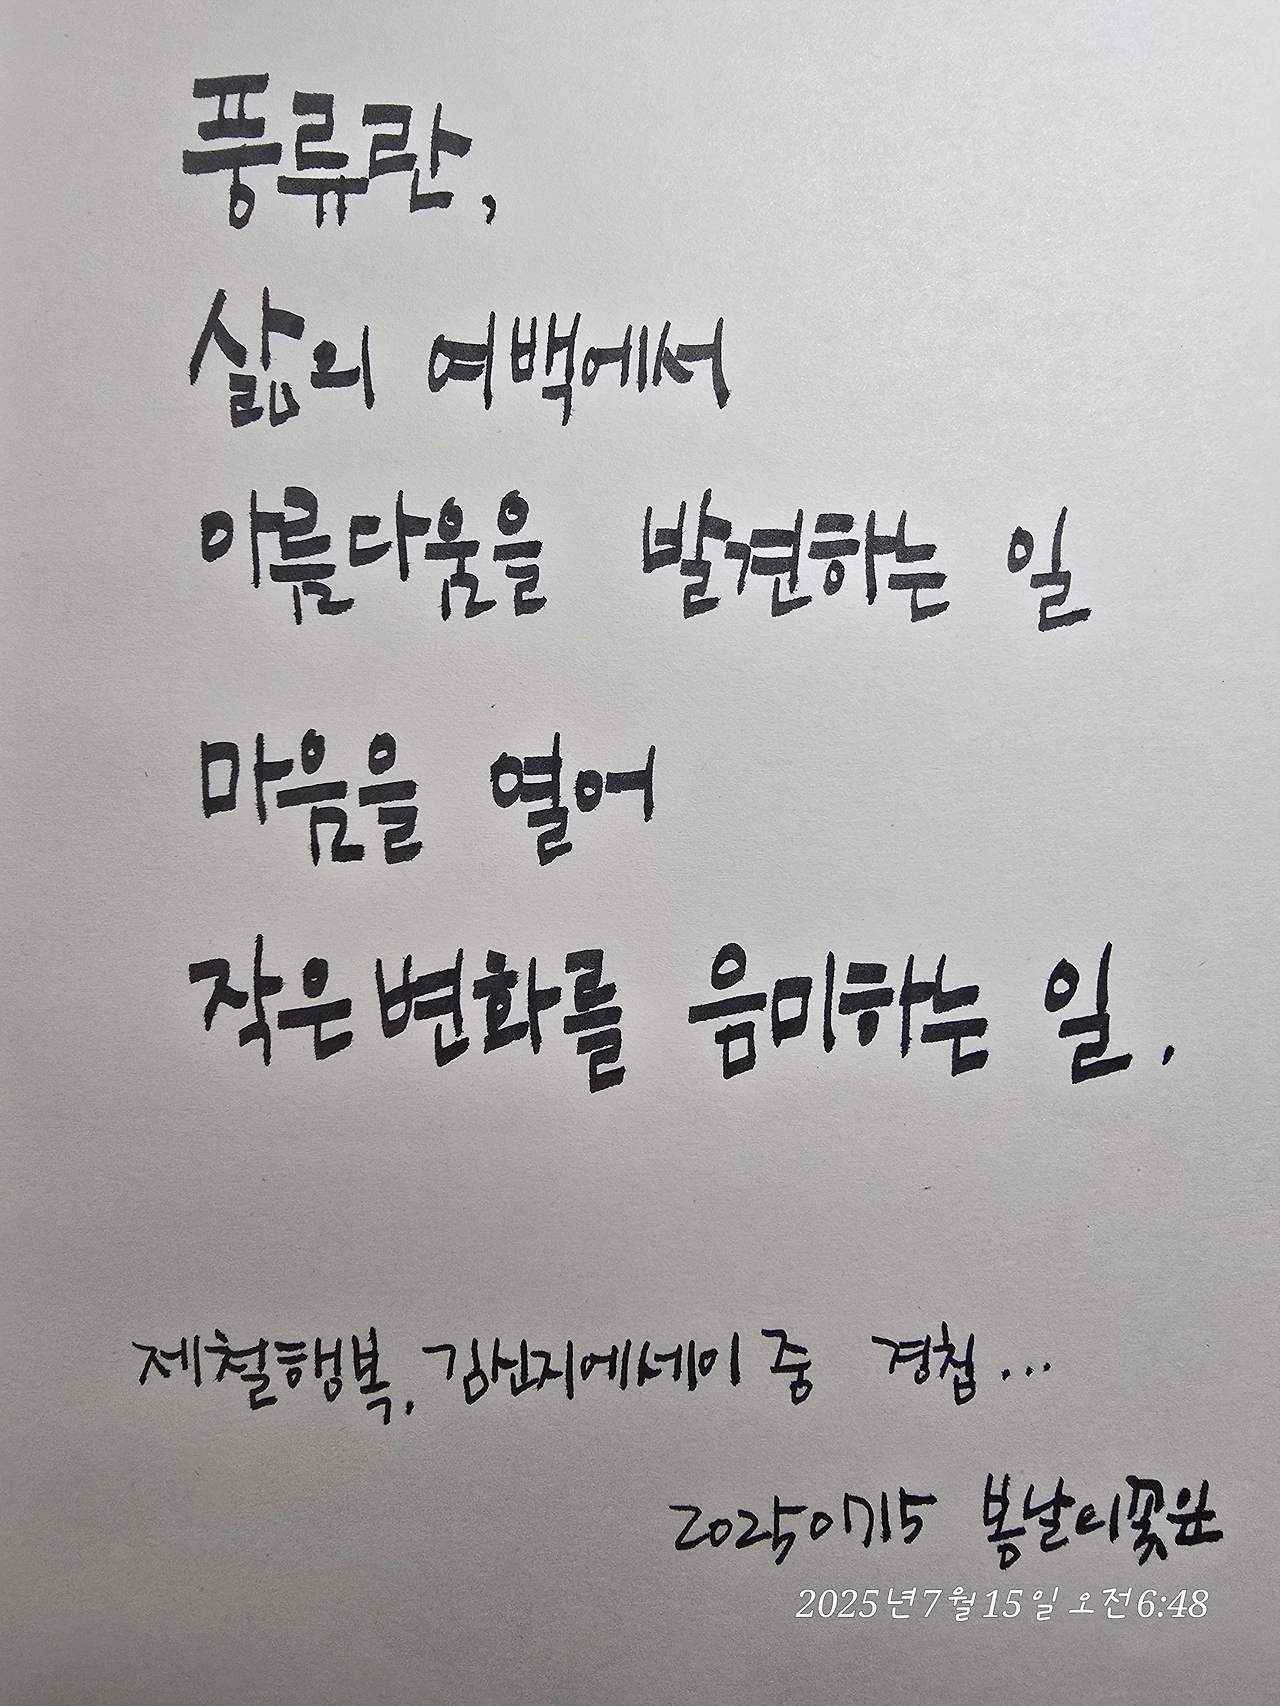 풍류란,
삶의 여백에서
아름다움을 발견하는 일
마음을 열어
작은 변화를 음미하는 일.
제철행복, 김신지에세이 중 경칩...
20250715 봄날의꽃윤
2025년 7월 15일 오전 6:48